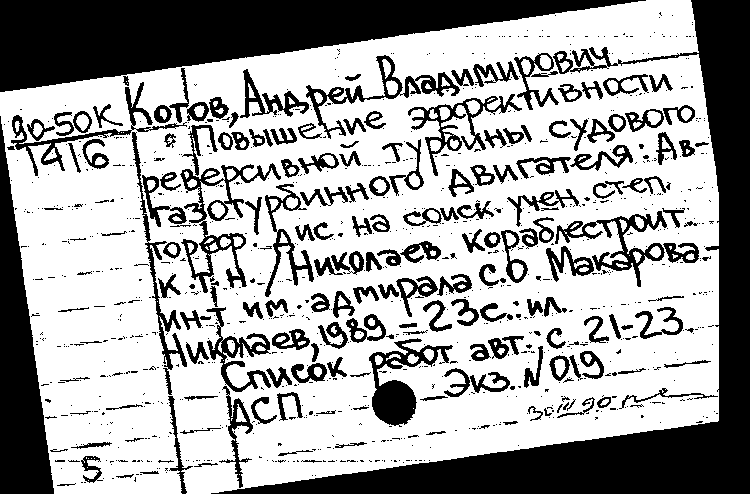 Котов, Андрей Владимирович
90-50К
1416
Повышение эффективности
реверсивной турбины судового
газотурбинного двигателя: Ав-
тореф. Дис. на соиск. учен. степ.
к.т.н. / Николаев. кораблестроит.
ин-т им. адмирала С.О. Макарова.-
Николаев, 1989. – 23с.: ил.
Список работ авт.: с 21-23.
ДСП. Экз. N 019
5